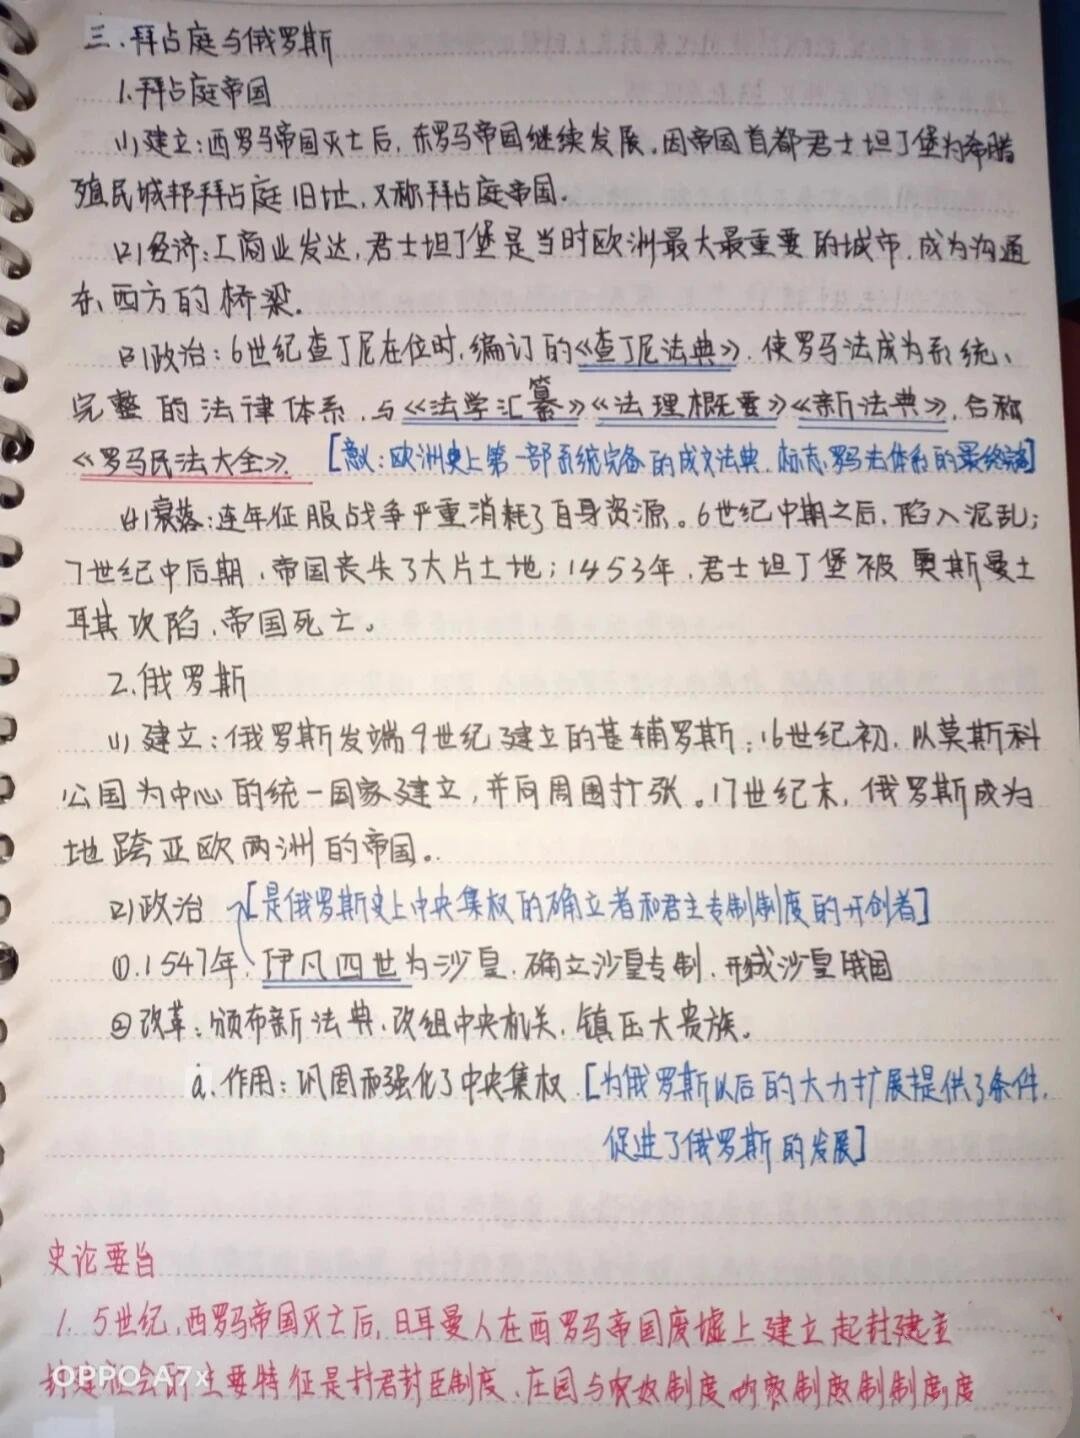 三.拜占庭与俄罗斯
1.拜占庭帝国
(1)建立:西罗马帝国灭亡后,东罗马帝国继续发展,因帝国首都君士坦丁堡为希腊
殖民城邦拜占庭旧址,又称拜占庭帝国.
(2)经济:工商业发达,君士坦丁堡是当时欧洲最大最重要的城市,成为沟通
东、西方的桥梁.
(3)政治:6世纪查丁尼在位时,编订的《查丁尼法典》,使罗马法成为系统、
完整的法律体系,与《法学汇纂》《法理概要》《新法典》,合称
《罗马民法大全》. [意义:欧洲史上第一部系统完备的成文法典,标志罗马法体系的最终完备]
(4)衰落:连年征服战争严重消耗了自身资源。6世纪中期之后,陷入混乱;
7世纪中后期,帝国丧失了大片土地;1453年,君士坦丁堡被奥斯曼土
耳其攻陷,帝国死亡。
2.俄罗斯
(1)建立:俄罗斯发端9世纪建立的基辅罗斯;16世纪初,以莫斯科
公国为中心的统一国家建立,并向周围扩张。17世纪末,俄罗斯成为
地跨亚欧两洲的帝国。
(2)政治 [是俄罗斯史上中央集权的确立者和君主专制制度的开创者]
①.1547年,伊凡四世为沙皇,确立沙皇专制,形成沙皇俄国
②改革:颁布新法典,改组中央机关,镇压大贵族。
a.作用:巩固和强化了中央集权 [为俄罗斯以后的大力扩展提供了条件,
促进了俄罗斯的发展]
史论要旨
1. 5世纪,西罗马帝国灭亡后,日耳曼人在西罗马帝国废墟上建立起封建主
主要特征是封君封臣制度、庄园与农奴制度
OPPO A7x